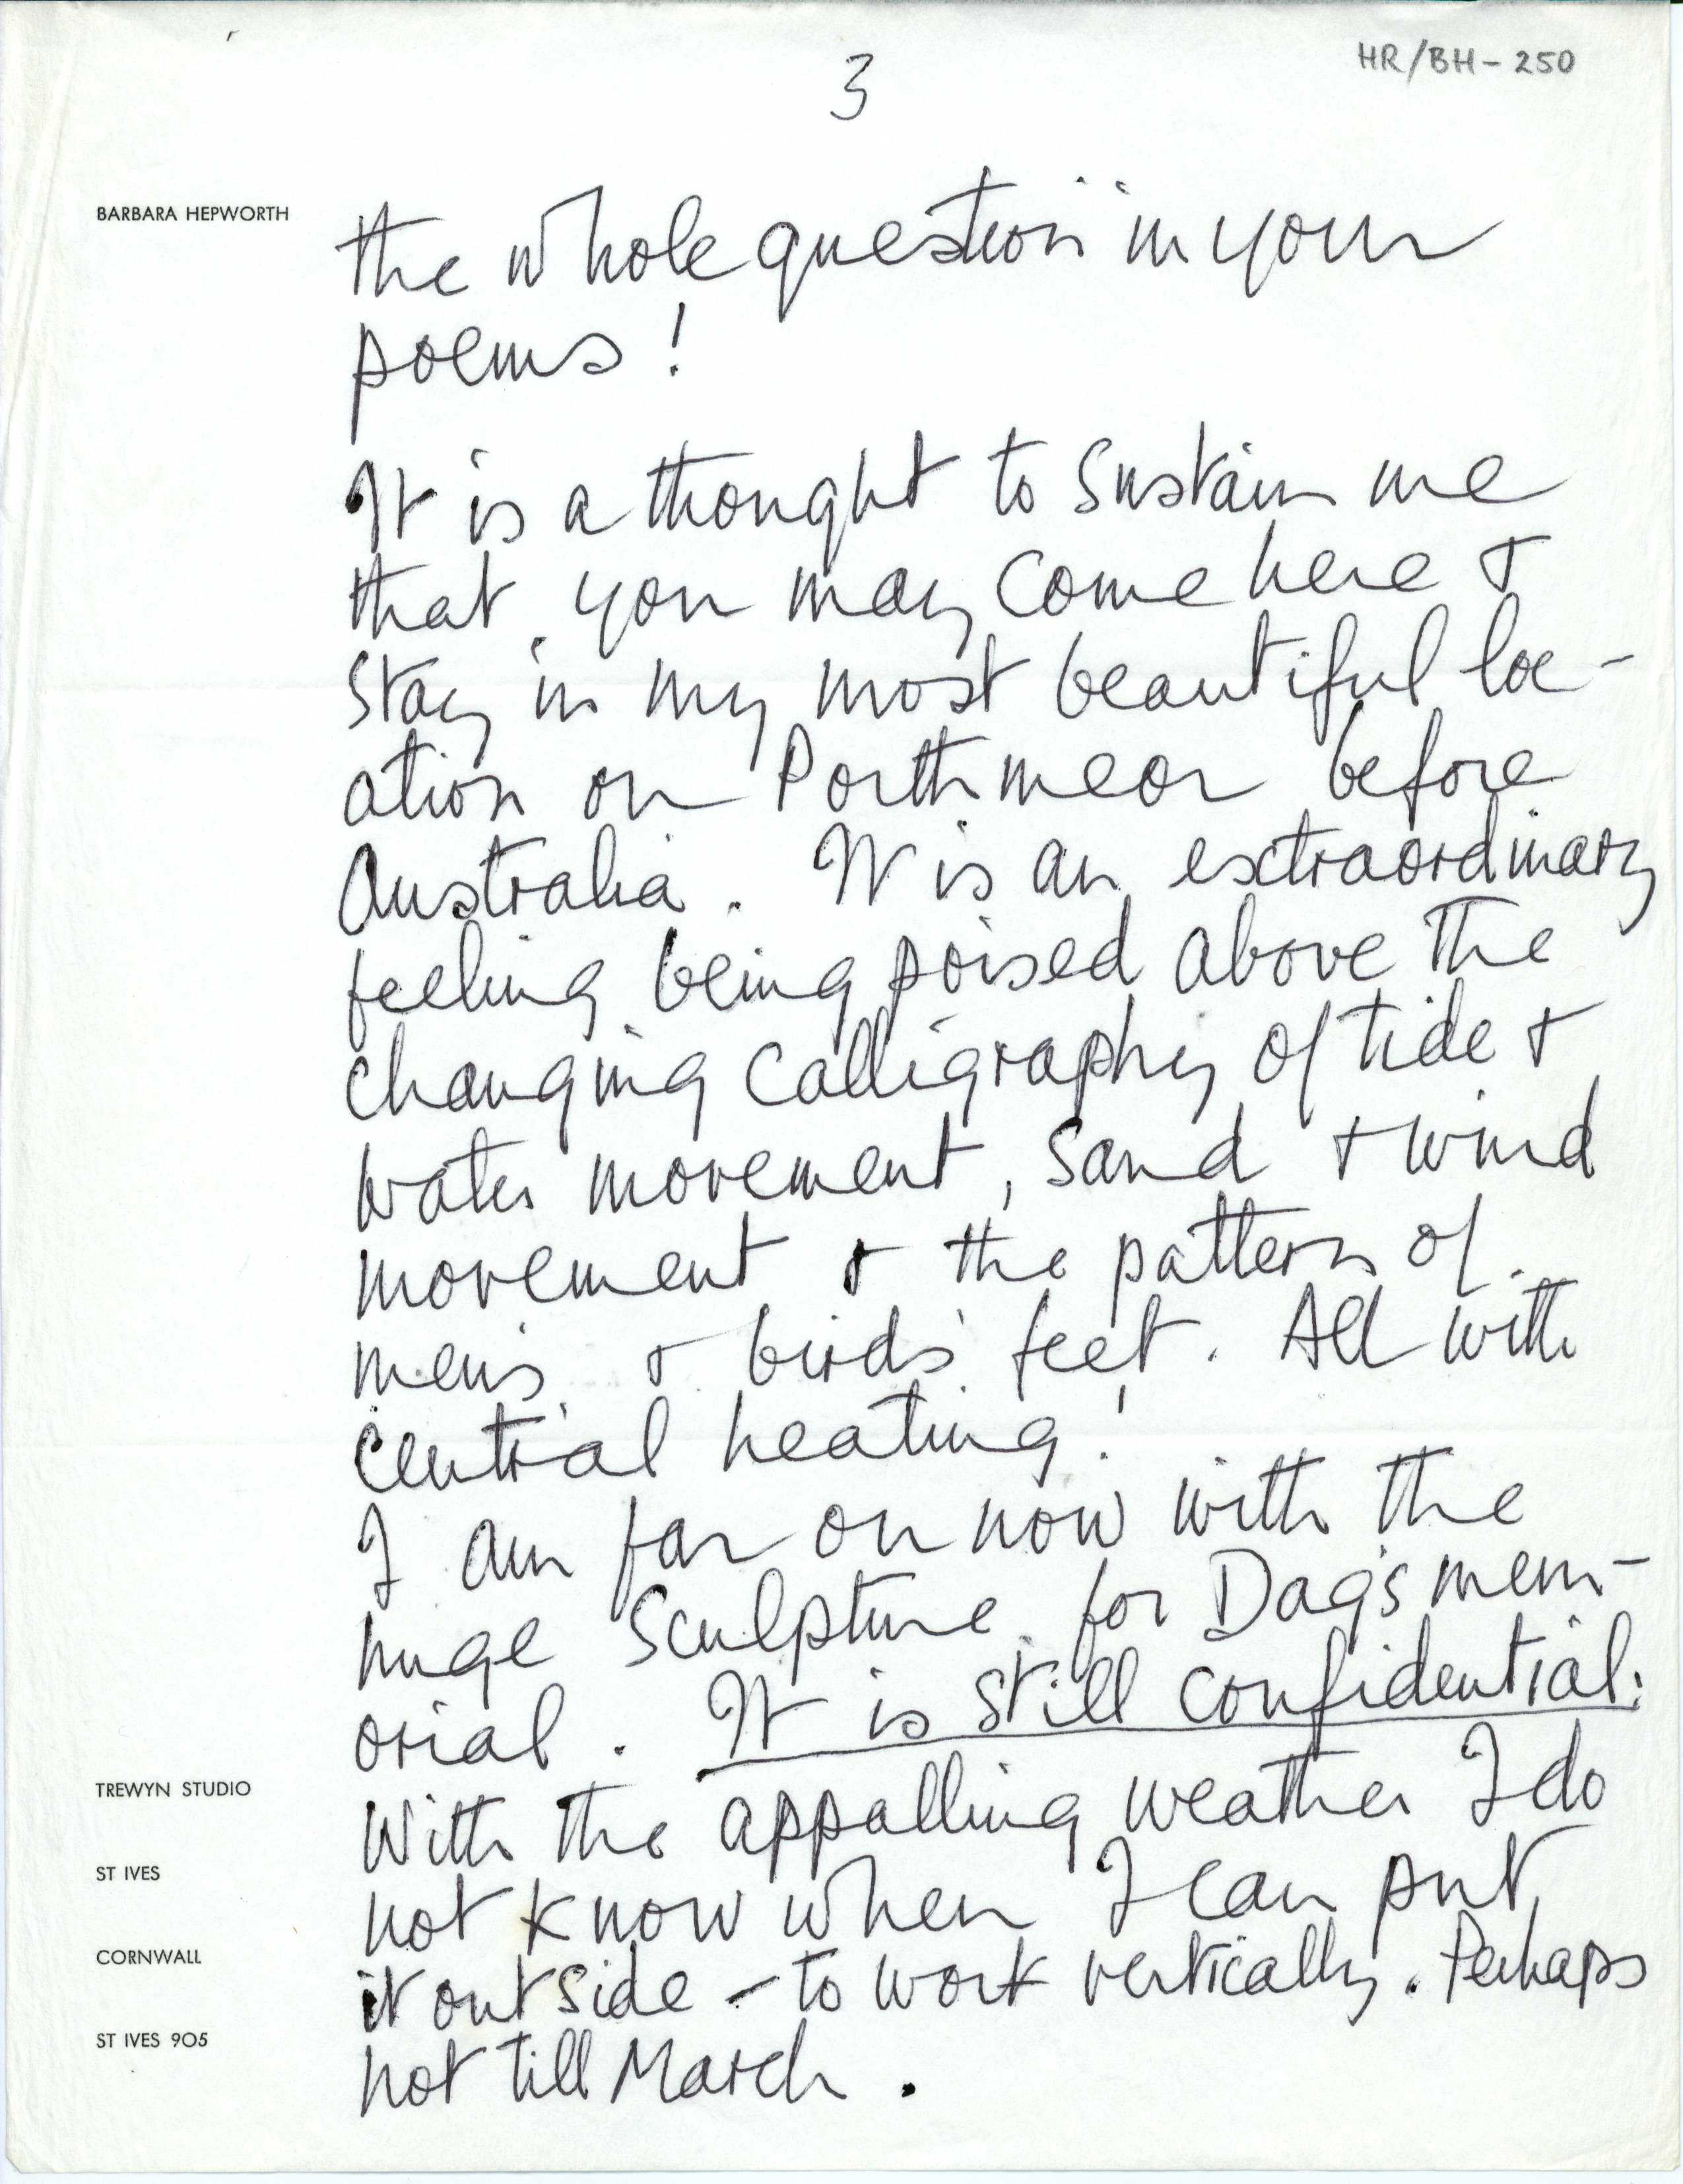 3
HR/BH - 250
BARBARA HEPWORTH
the whole question in your
poems!
It is a thought to sustain me
that you may come here +
stay in my most beautiful loc-
ation on Porthmeor before
Australia. It is an extraordinary
feeling being poised above the
changing calligraphy of tide +
water movement, sand + wind
movement + the pattern of
men's + birds' feet. All with
central heating!
I am far on now with the
huge sculpture for Dag's mem-
orial. It is still confidential.
With the appalling weather I do
not know when I can put
it outside - to work vertically. Perhaps
not till March.
TREWYN STUDIO
ST IVES
CORNWALL
ST IVES 905